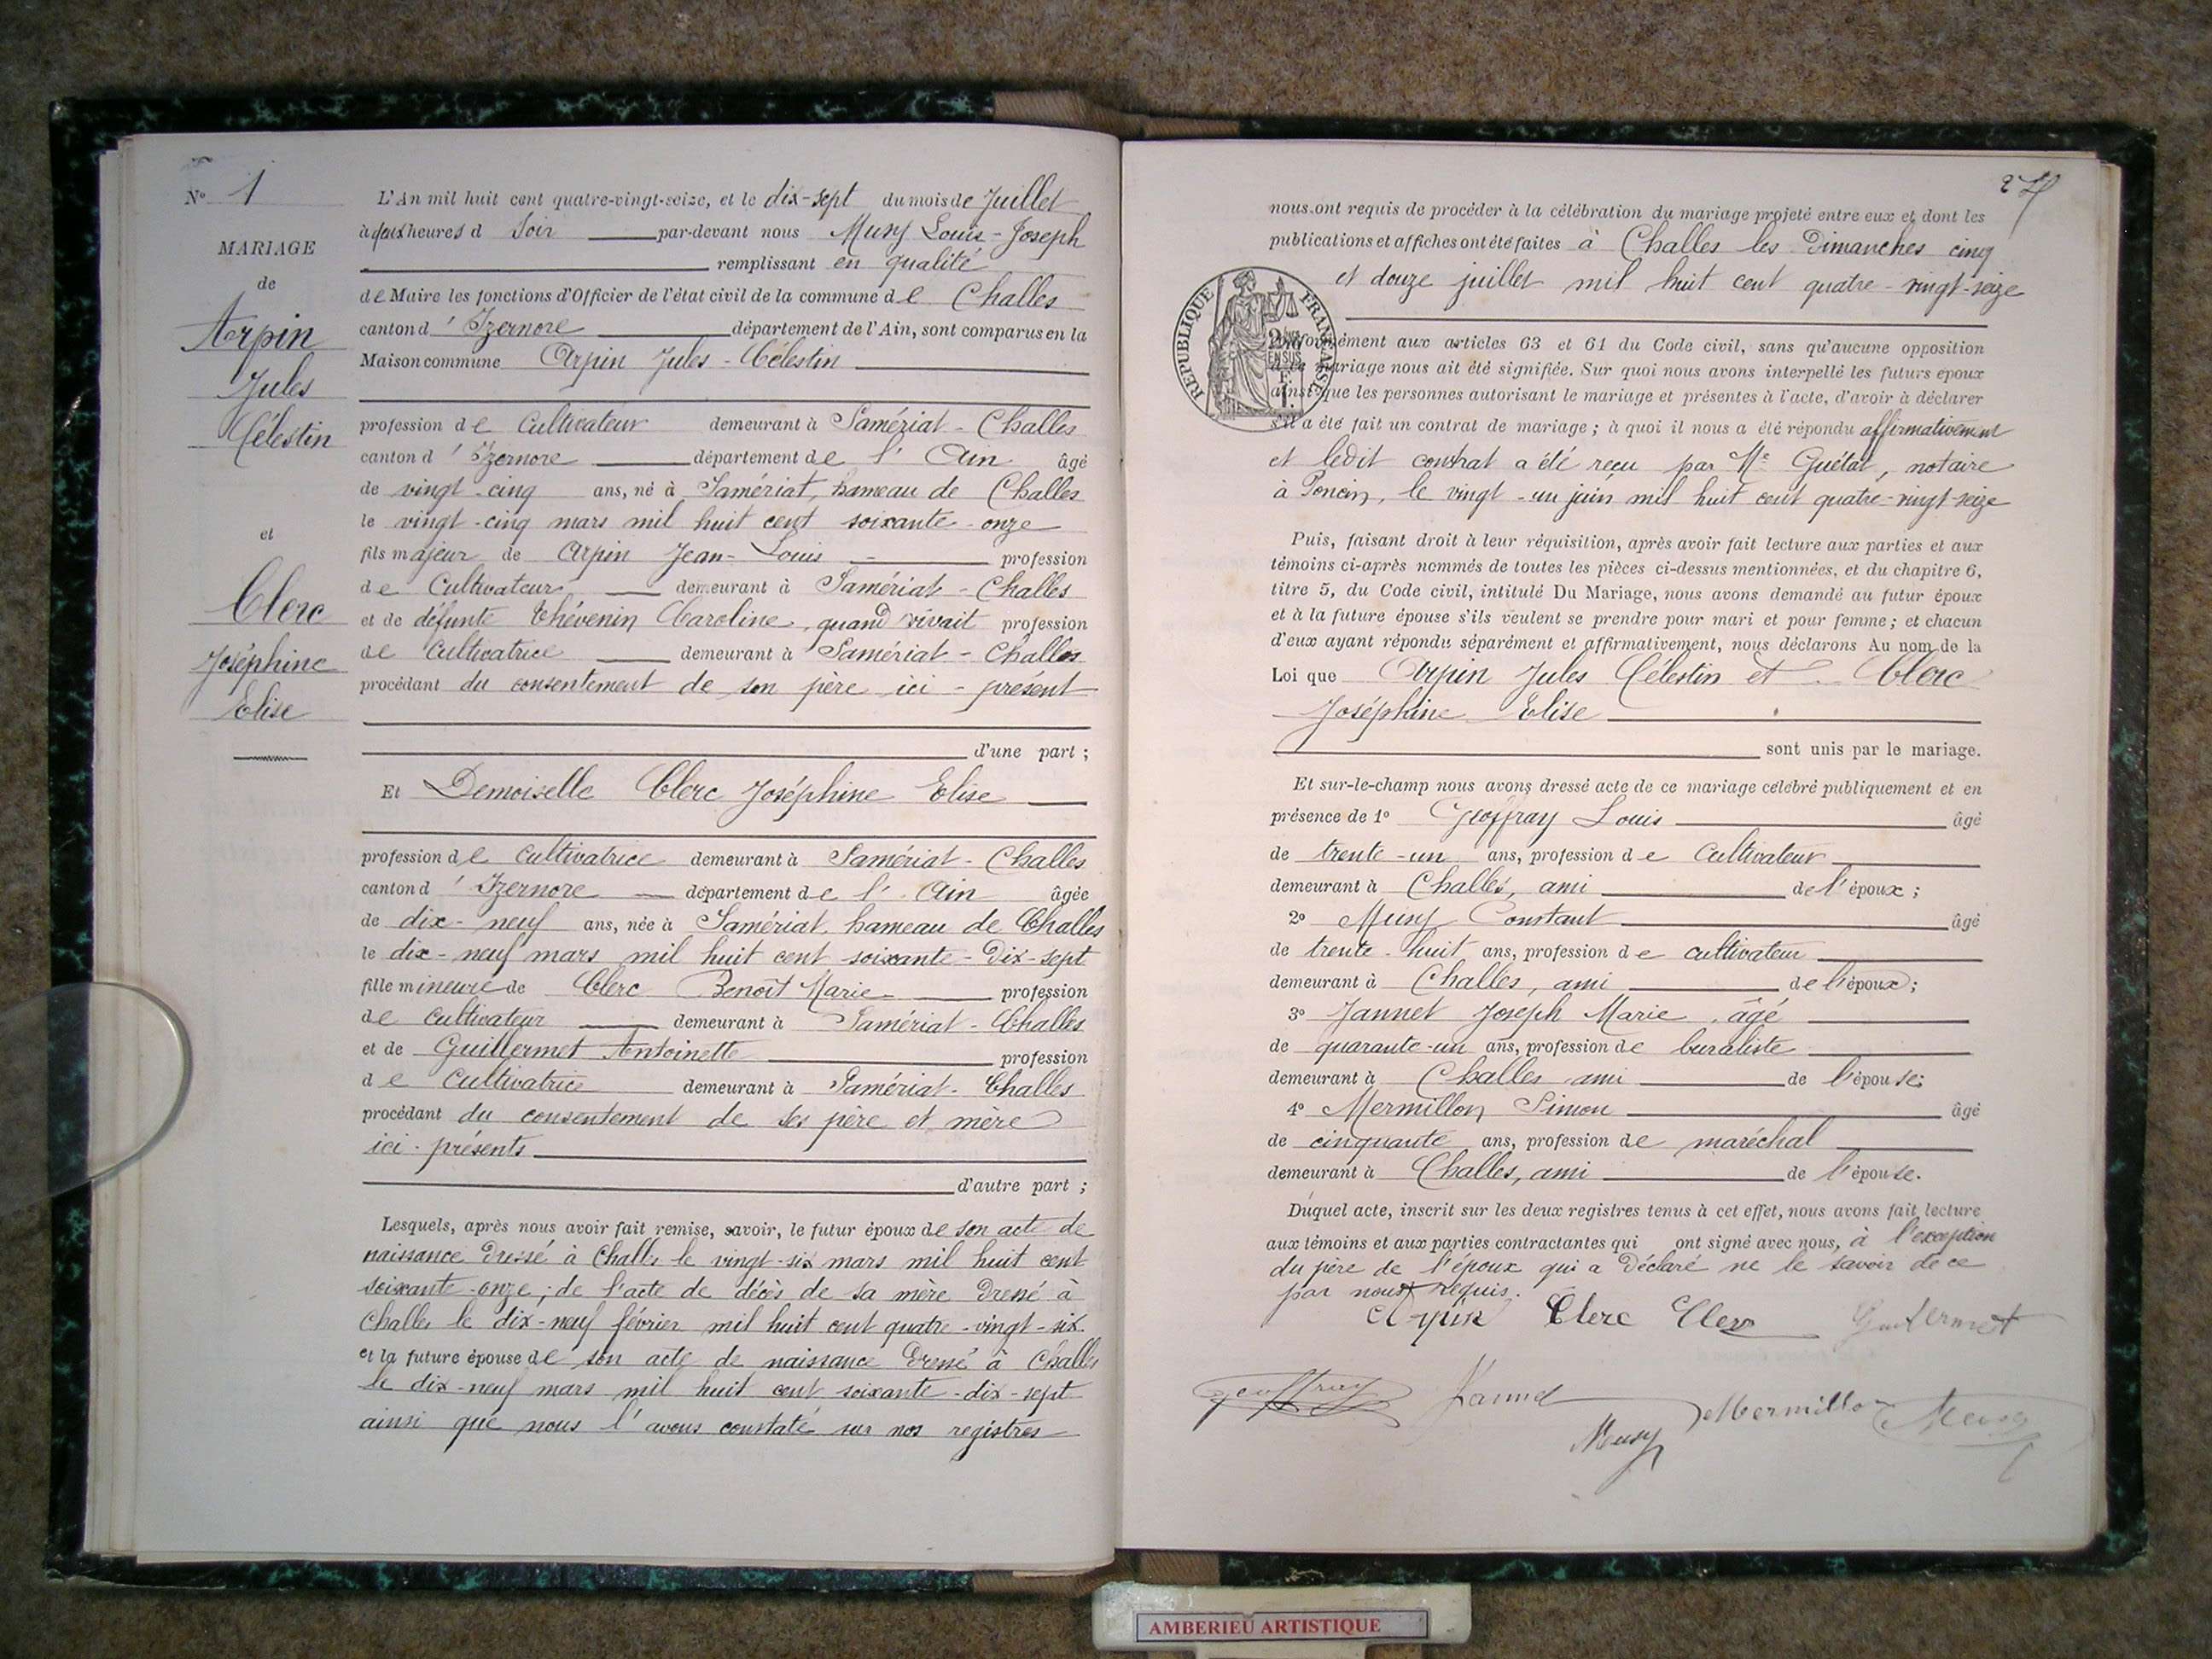 N° 1
MARIAGE
de
Arpin
Jules
Célestin
et
Clerc
Joséphine
Elise
L'An mil huit cent quatre-vingt-seize, et le dix-sept du mois de Juillet
à deux heures d Soir par-devant nous Musy Louis-Joseph
remplissant en qualité
de Maire les fonctions d'Officier de l'état civil de la commune de Challes
canton d'Izernore département de l'Ain, sont comparus en la
Maison commune Arpin Jules-Célestin
profession de Cultivateur demeurant à Samériat-Challes
canton d'Izernore département de l'Ain âgé
de vingt-cinq ans, né à Samériat, hameau de Challes
le vingt-cinq mars mil huit cent soixante-onze
fils majeur de Arpin Jean-Louis profession
de Cultivateur demeurant à Samériat-Challes
et de défunte Thévenin Caroline, quand vivait profession
de Cultivatrice demeurant à Samériat-Challes
procédant du consentement de son père ici-présent
d'une part ;
Et Demoiselle Clerc Joséphine Elise
profession de cultivatrice demeurant à Samériat-Challes
canton d'Izernore département de l'Ain âgée
de dix-neuf ans, née à Samériat, hameau de Challes
le dix-neuf mars mil huit cent soixante-dix-sept
fille mineure de Clerc Benoît Marie profession
de cultivateur demeurant à Samériat-Challes
et de Guillermet Antoinette profession
de Cultivatrice demeurant à Samériat-Challes
procédant du consentement de ses père et mère
ici-présents
d'autre part ;
Lesquels, après nous avoir fait remise, savoir, le futur époux de son acte de
naissance dressé à Challes le vingt-six mars mil huit cent
soixante-onze ; de l'acte de décès de sa mère dressé à
Challes le dix-neuf février mil huit cent quatre-vingt-six
et la future épouse de son acte de naissance dressé à Challes
le dix-neuf mars mil huit cent soixante-dix-sept
ainsi que nous l'avons constaté sur nos registres
27
nous ont requis de procéder à la célébration du mariage projeté entre eux et dont les
publications et affiches ont été faites à Challes les Dimanches cinq
et douze juillet mil huit cent quatre-vingt-seize
REPUBLIQUE FRANÇAISE
Conformément aux articles 63 et 64 du Code civil, sans qu'aucune opposition
à ce mariage nous ait été signifiée. Sur quoi nous avons interpellé les futurs époux
ainsi que les personnes autorisant le mariage et présentes à l'acte, d'avoir à déclarer
s'il a été fait un contrat de mariage ; à quoi il nous a été répondu affirmativement
et ledit contrat a été reçu par Me Guétat, notaire
à Poncin, le vingt-un juin mil huit cent quatre-vingt-seize
Puis, faisant droit à leur réquisition, après avoir fait lecture aux parties et aux
témoins ci-après nommés de toutes les pièces ci-dessus mentionnées, et du chapitre 6,
titre 5, du Code civil, intitulé Du Mariage, nous avons demandé au futur époux
et à la future épouse s'ils veulent se prendre pour mari et pour femme ; et chacun
d'eux ayant répondu séparément et affirmativement, nous déclarons Au nom de la
Loi que Arpin Jules Célestin et Clerc
Joséphine Elise
sont unis par le mariage.
Et sur-le-champ nous avons dressé acte de ce mariage célébré publiquement et en
présence de 1° Geoffray Louis âgé
de trente-un ans, profession de Cultivateur
demeurant à Challes, ami de l'époux ;
2° Musy Constant âgé
de trente-huit ans, profession de cultivateur
demeurant à Challes, ami de l'époux ;
3° Jannet Joseph Marie, âgé
de quarante-un ans, profession de buraliste
demeurant à Challes ami de l'épouse;
4° Mermillon Simon âgé
de cinquante ans, profession de maréchal
demeurant à Challes, ami de l'épouse.
Duquel acte, inscrit sur les deux registres tenus à cet effet, nous avons fait lecture
aux témoins et aux parties contractantes qui ont signé avec nous, à l'exception
du père de l'époux qui a déclaré ne le savoir de ce
par nous requis.
Arpin Clerc Clerc Guillermet
Geoffray Jannet Mermillon Musy
Musy
AMBERIEU ARTISTIQUE